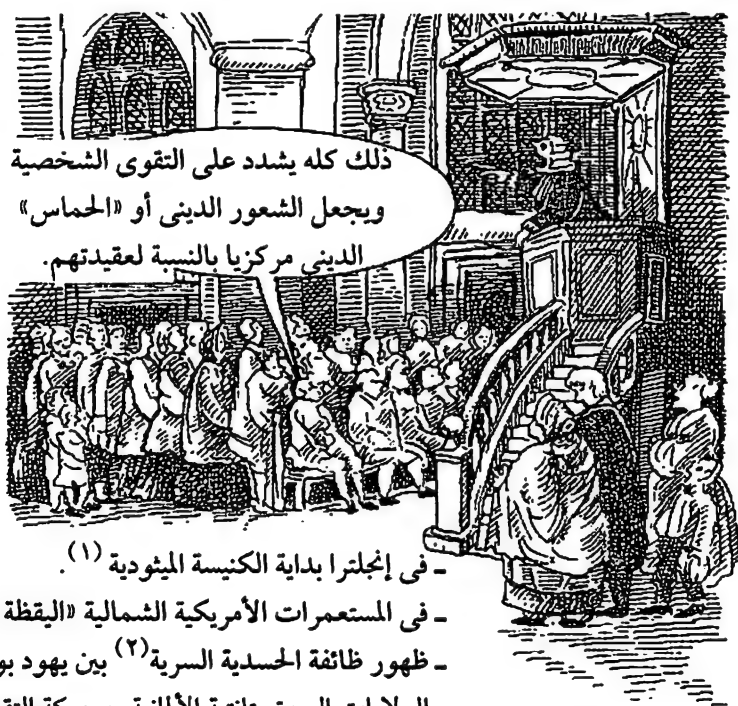 ذلك كله يشدد على التقوى الشخصية
ويجعل الشعور الدينى أو «الحماس»
الدينى مركزيا بالنسبة لعقيدتهم.
ـ فى إنجلترا بداية الكنيسة الميثودية (١).
ـ فى المستعمرات الأمريكية الشمالية «اليقظة
ـ ظهور ظائفة الحسدية السرية(٢) بين يهود بو